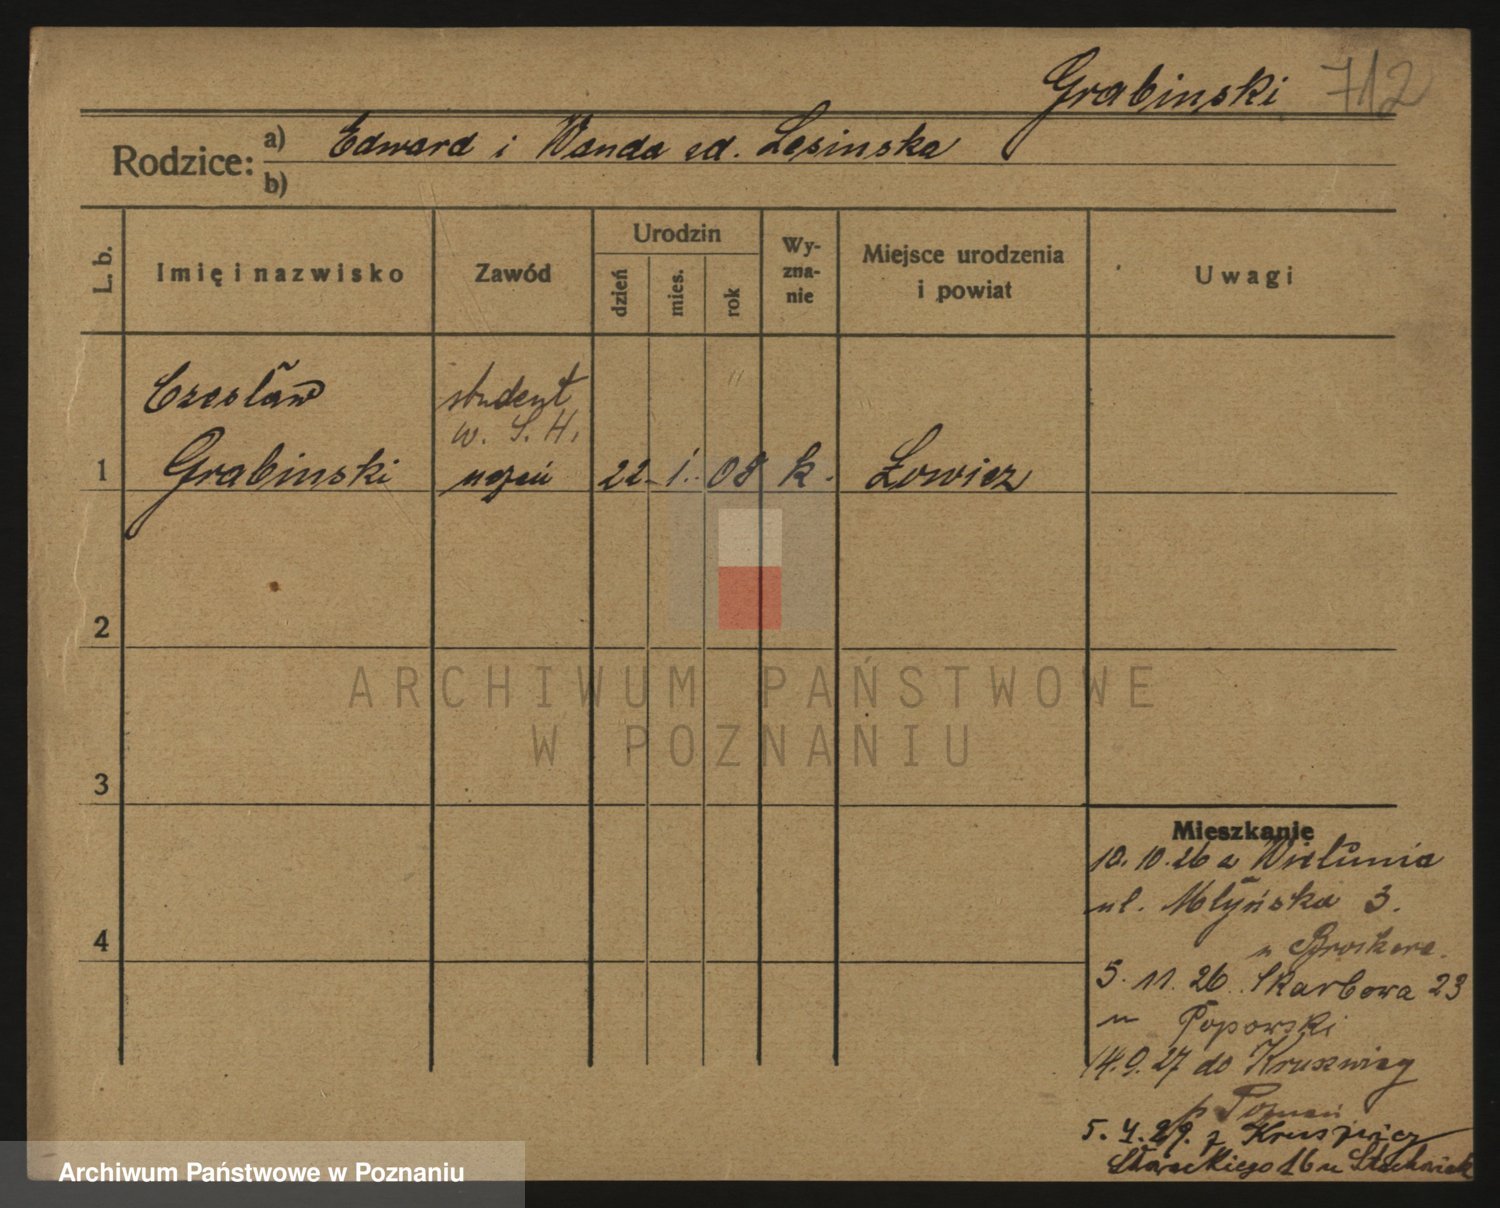 Grabinski 712
Rodzice: a) Edward i Wanda zd. Lesinska
b)
L. b.
Imię i nazwisko
Zawód
Urodzin
dzień
mies.
rok
Wy-
zna-
nie
Miejsce urodzenia
i powiat
Uwagi
Czesław
student
W. S. H.
1 Grabinski uczeń 22. 1. 08 k. Łowicz
2
3
4
Mieszkanie
10. 10. 26 z Wielunia
ul. Młyńska 3.
u
5. 11. 26. Skarbowa 23
u Toporski
14.9.27 do Kruszwicy
p Poznań
5. 4. 29. z Kruszwicy
Słowackiego 16 u
ARCHIWUM PAŃSTWOWE
W POZNANIU
Archiwum Państwowe w Poznaniu